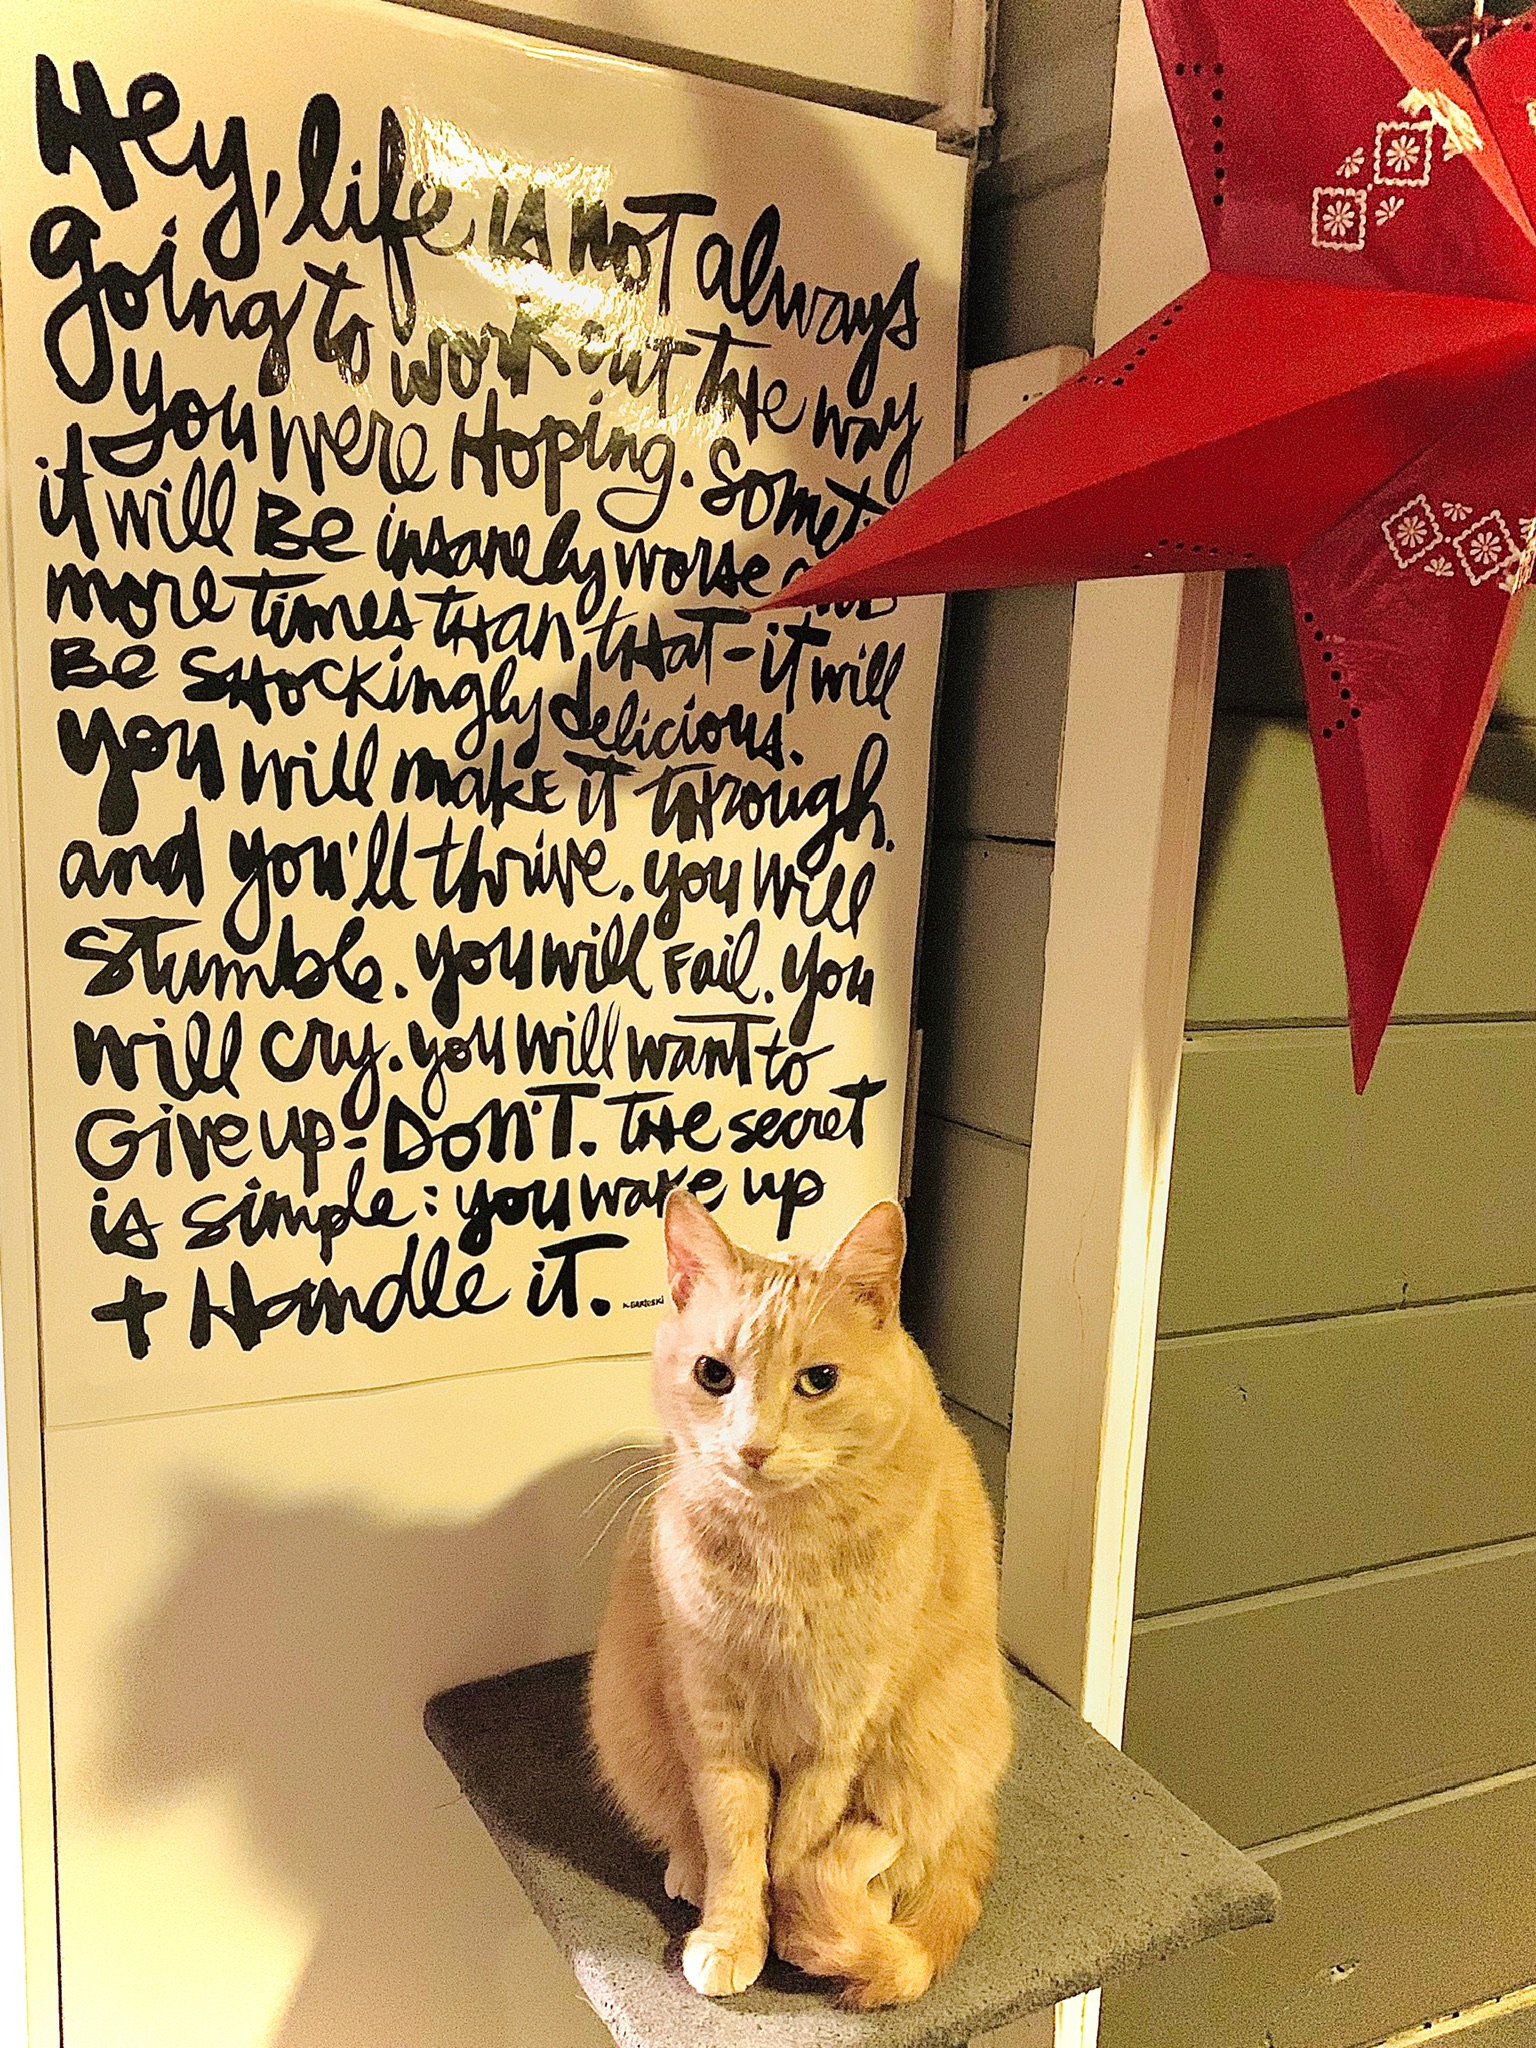 Hey, life is not always
going to work out the way
you were Hoping. Sometim
it will Be insanely worse and
more times than that - it will
Be shockingly delicious.
you will make it through.
and you'll thrive. you will
stumble. you will Fail. you
will cry. you will want to
Give up - Don't. the secret
is simple: you wake up
+ Handle it.